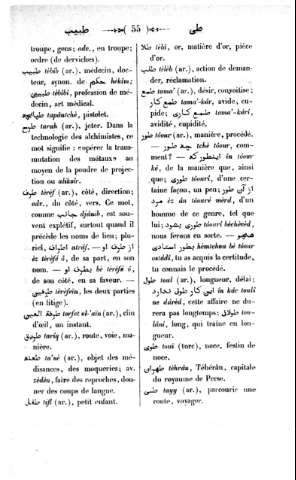 طبیب — 55 — طی
troupe, gens; odr., en troupe;
ordre (de derviches).
طبیب tèbib (ar.), médecin, doc-
teur, synon. de حکیم hèkim;
طبیبی tèbibi, profession de mé-
decin, art médical.
طپانچه tapùntchè, pistolet.
طرح tarah (ar.), jeter. Dans la
technologie des alchimistes, ce
mot signifie: «opérer la trans-
mutation des métaux» au
moyen de la poudre de projec-
tion ou
طرف tèrèf (ar.), côté, direction;
odr., du côté, vers. Ce mot,
comme جانب djânib, est sou-
vent explétif, surtout quand il
précède les noms de lieu; plu-
riel, اطراف atrèf. — از طرف او
èz tèrèfi ô, de sa part, en son
nom. — بطرف او bè tèrèfè ô,
de son côté, en sa faveur. —
طرفین tèrèfèin, les deux parties
(en litige).
طرفة العین torfet ol-'aïn (ar.), clin
d'œil, un instant.
طریق tariq (ar.), route, voie, ma-
nière.
طعنه ta'nè (ar.), objet des mé-
disances, des moqueries; av.
zèdèn, faire des reproches, don-
ner des coups de langue.
طفل tifl (ar.), petit enfant.
طلا tèlâ, or, matière d'or, pièce
d'or.
طلب tèlèb (ar.), action de deman-
der, réclamation.
طمع tama' (ar.), désir, convoitise;
طمع کار tama'-kâr, avide, cu-
pide; طمع کاری tama'-kâri,
avidité, cupidité.
طور tòour (ar.), manière, procédé.
— چه طور tchè tòour, com-
ment? — اینطور که in tòour
kè, de la manière que, ainsi
que; طوری tòouri, d'une cer-
taine façon, un peu; از آن طور
مرد èz ân tòouri mèrd, d'un
homme de ce genre, tel que
lui; طوری بشود tòouri bèchèvèd,
nous ferons en sorte. — همچو
بطور استادی hèmtchou bè tòour
ostâdi, tu as acquis la certitude,
tu connais le procédé.
طول toul (ar.), longueur, délai;
این کار طول ندارد in kâr touli
nè dârèd, cette affaire ne du-
rera pas longtemps; طولانی tou-
lâni, long, qui traîne en lon-
gueur.
طوی toui (turc), noce, festin de
noce.
طهران tèhrân, Téhéran, capitale
du royaume de Perse.
طی tayy (ar.), parcourir une
route, voyager.